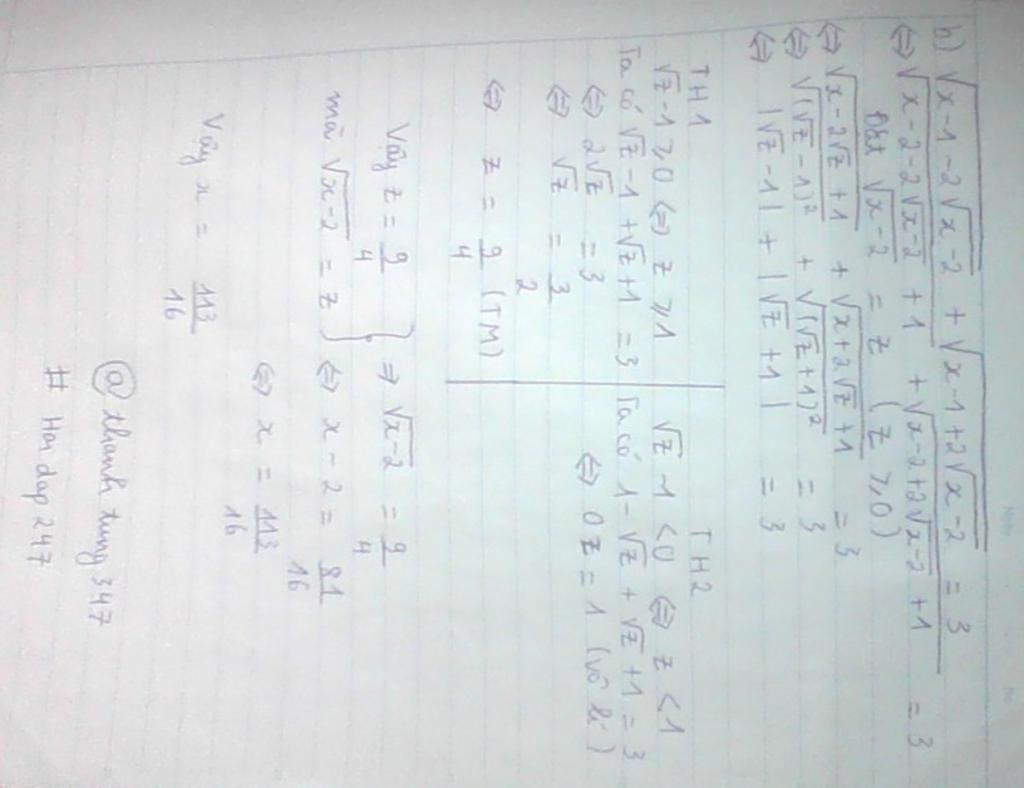 b) √(x-1-2√(x-2)) + √(x-1+2√(x-2)) = 3
⇔ √(x-2-2√(x-2)+1) + √(x-2+2√(x-2)+1) = 3
Đặt √(x-2) = z (z ≥ 0)
⇔ √(x-2√z+1) + √(x+2√z+1) = 3
⇔ √((√z-1)²) + √((√z+1)²) = 3
⇔ |√z-1| + |√z+1| = 3
TH1
√z-1 ≥ 0 ⇔ z ≥ 1
Ta có √z-1+√z+1 = 3
⇔ 2√z = 3
⇔ √z = 3/2
⇔ z = 9/4 (TM)
TH2
√z-1 < 0 ⇔ z < 1
Ta có 1-√z+√z+1 = 3
⇔ 0z = 1 (vô lí)
Vậy z = 9/4 } ⇒ √(x-2) = 9/4
mà √(x-2) = z } ⇔ x-2 = 81/16
⇔ x = 113/16
Vậy x = 113/16
@thanh tung 347
# Hoi dap 247